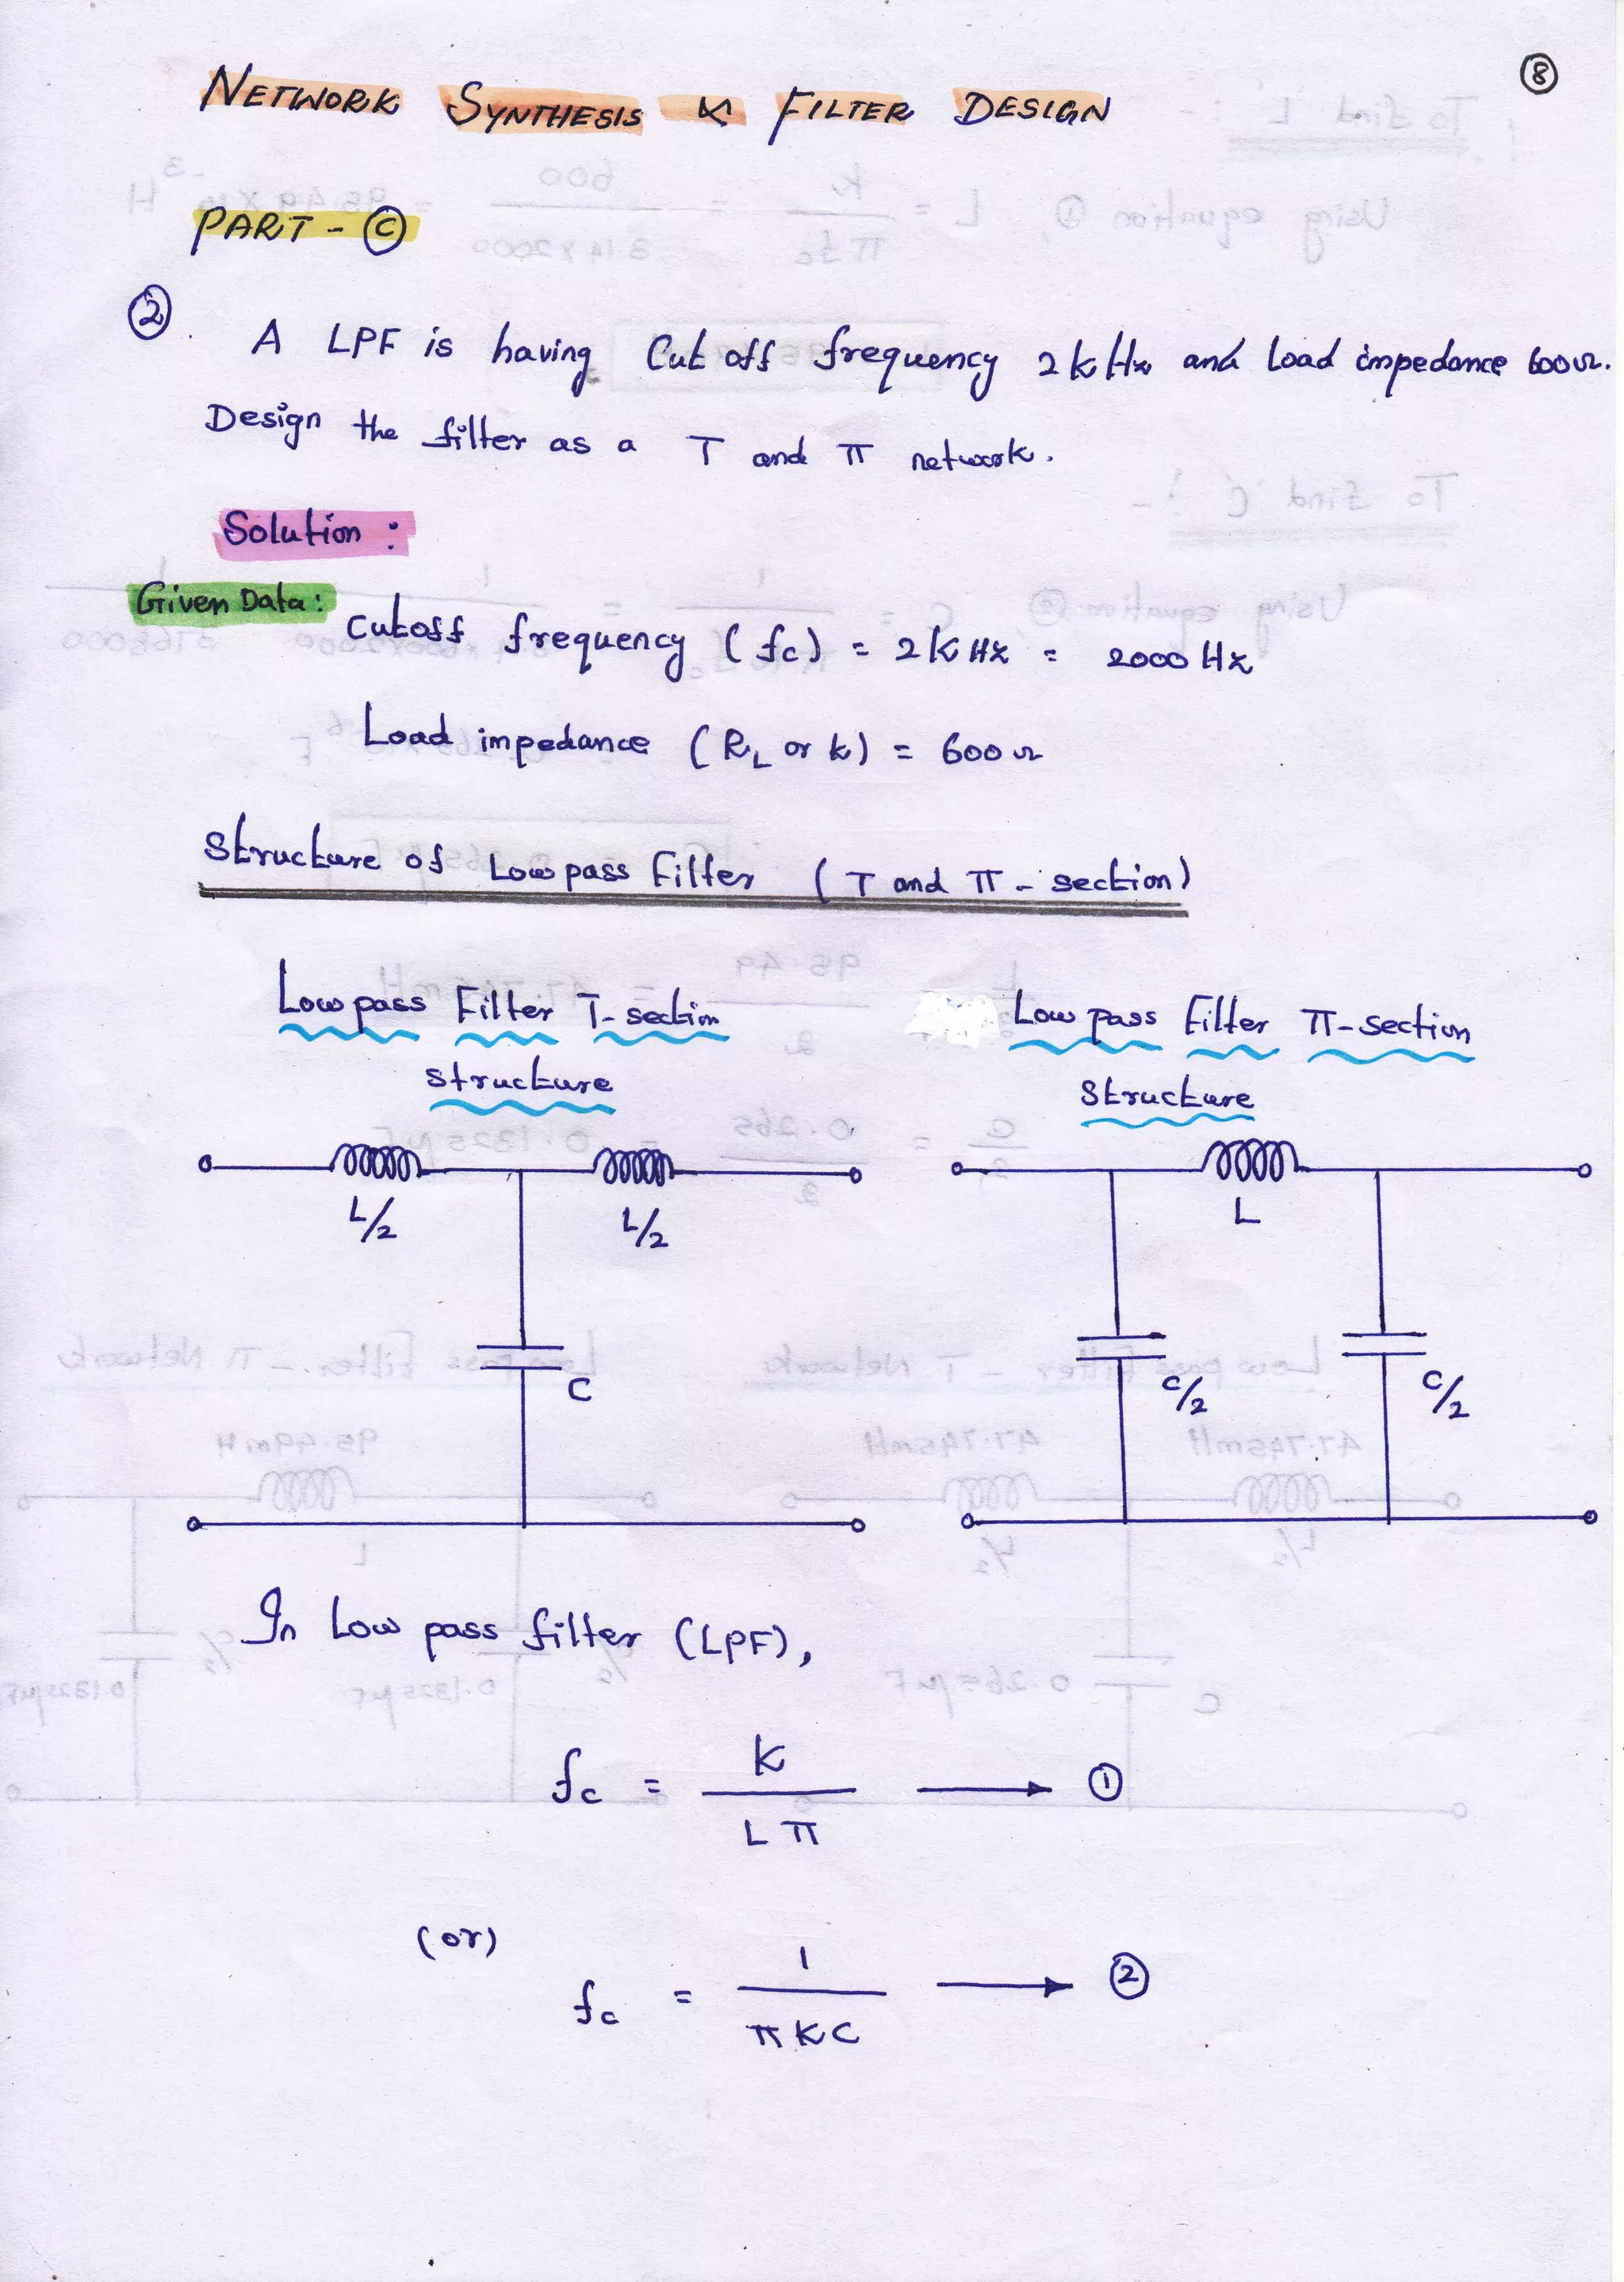 8
NETWORK SYNTHESIS & FILTER DESIGN
PART - C
2. A LPF is having Cut off frequency 2 k Hz and Load impedance 600Ω.
Design the filter as a T and π network.
Solution :
Given Data : Cutoff frequency (fc) = 2 K Hz = 2000 Hz
Load impedance (RL or k) = 600 Ω
Structure of Low pass Filter (T and π - section)
Low pass Filter T- section
structure
Low pass Filter π-section
Structure
L/2
L/2
C
L
C/2
C/2
In Low pass filter (LPF),
fc = K / L π → 1
(or)
fc = 1 / π K C → 2